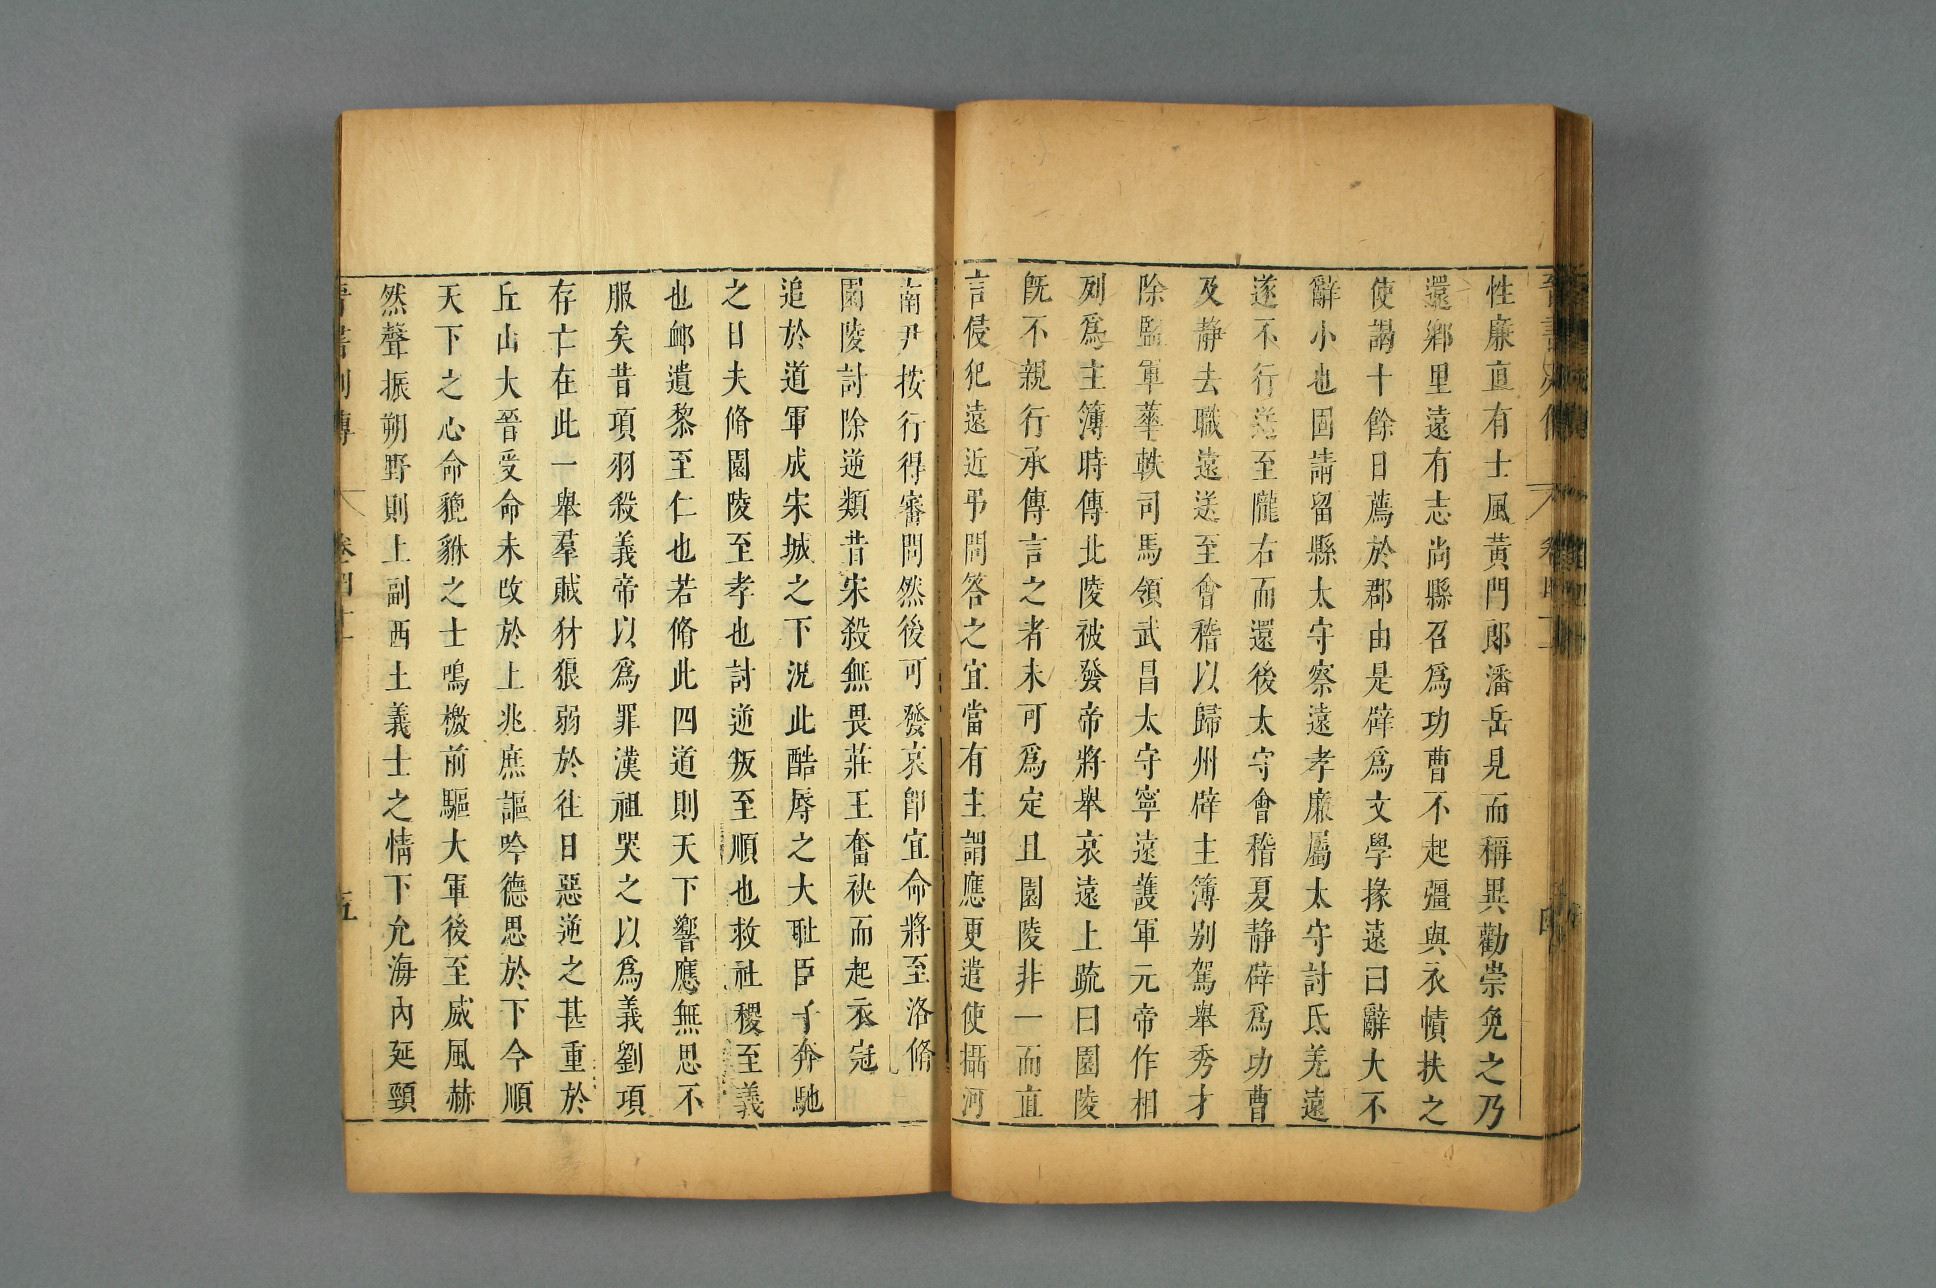 性廉直有士風黃門郎潘岳見而稱異勸崇免之乃
還鄉里遠有志尚縣召爲功曹不起彊與衣幘扶之
使謁十餘日薦於郡由是辟爲文學掾遠曰辭大不
辭小也固請留縣太守察遠孝廉屬太守討氐羌遠
遂不行送至隴右而還後太守會稽夏靜辟爲功曹
及靜去職遠送至會稽以歸州辟主簿别駕舉秀才
除監軍華軼司馬領武昌太守寧遠護軍元帝作相
列爲主簿時傳北陵被發帝將舉哀遠上疏曰園陵
旣不親行承傳言之者未可爲定且園陵非一而直
言侵犯遠近弔問答之宜當有主謂應更遣使攝河
南尹按行得審問然後可發哀卽宜命將至洛脩
園陵討除逆類昔宋殺無畏莊王奮袂而起衣冠
追於道軍成宋城之下況此酷辱之大耻臣子奔馳
之日夫脩園陵至孝也討逆叛至順也救社稷至義
也卹遺黎至仁也若脩此四道則天下響應無思不
服矣昔項羽殺義帝以爲罪漢祖哭之以爲義劉項
存亡在此一舉羣賊犲狼弱於往日惡逆之甚重於
丘山大晉受命未攺於上兆庶謳吟德思於下今順
天下之心命貔貅之士鳴檄前驅大軍後至威風赫
然聲振朔野則上副西土義士之情下允海內延頸
晋書列傳 卷四十一 五